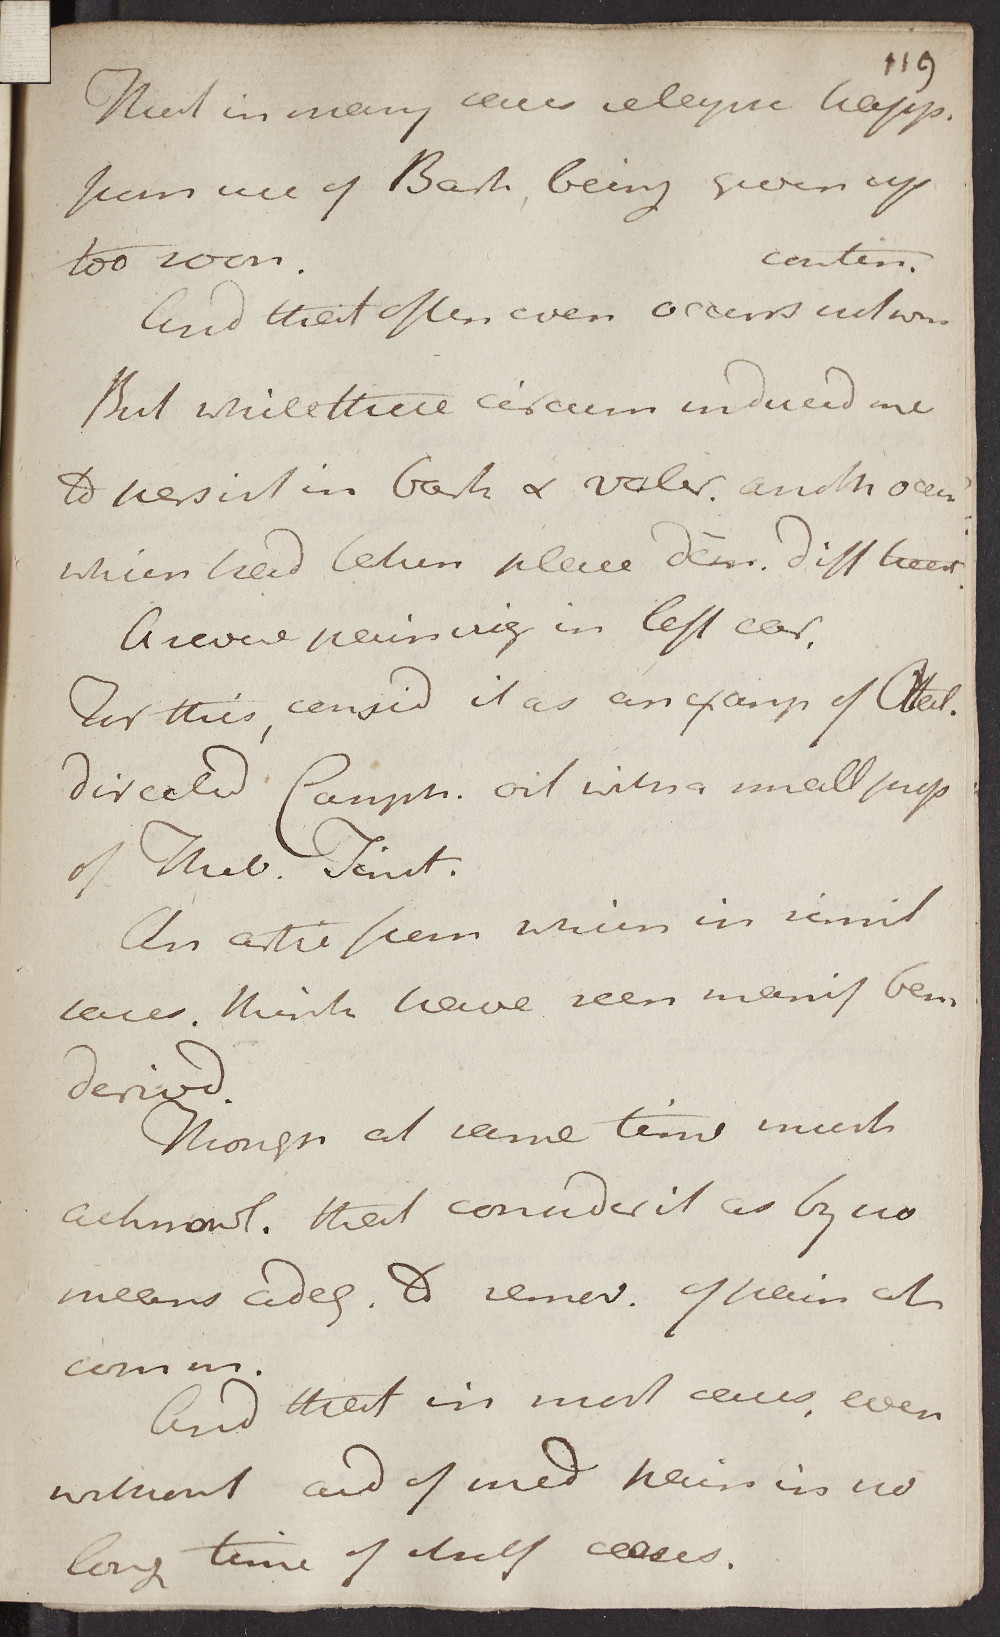 119
That in many cases relapse happ.
from use of Bark, being given up
too soon. contin.
And that often even occurs notwn
But while these circum induced me
to persist in bark & valer. anoth occur
which had taken place dem. diff treat.
A severe pain in left ear.
For this, consid it as an examp of Otal.
directed Camph. oil with a small prop
of Theb. Tinct.
An from which in simil
cases. think have seen manif ben
derivd.
Though at same time must
acknowl. that consider it as by no
means adeq. to remov. of pain at
comm.
And that in most cases, even
without aid of med pain in no
long time of itself ceases.